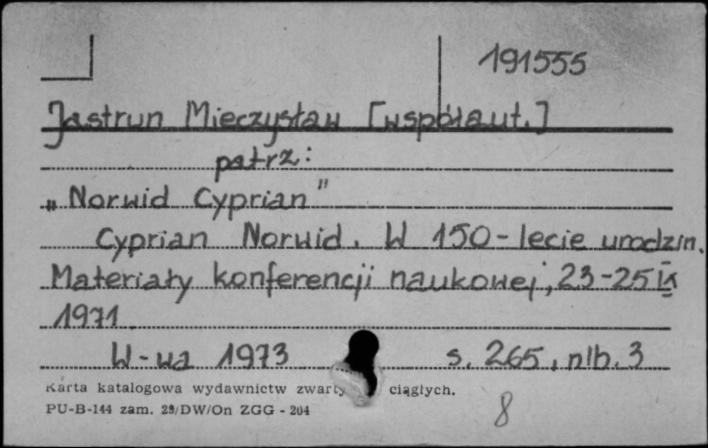 191555
Jastrun Mieczysław [współaut.]
patrz:
„Norwid Cyprian”
Cyprian Norwid. W 150-lecie urodzin.
Materiały konferencji naukowej, 23-25 IX
1971
W-wa 1973 s. 265, nlb. 3
Karta katalogowa wydawnictw zwarty ciągłych.
PU-B-144 zam. 29/DW/On ZGG - 204
8